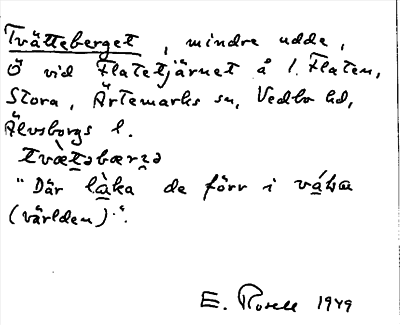 Tvätteberget, mindre udde,
Ö vid Flatetjärnet å l. Flaten,
Stora, Ärtemarks sn, Vedbo hd,
Älvsborgs l.
tvæ̀t̲əbærʒə
"Där là̲ka de förr i vá̲ha
(världen)".
E. Rosell 1949